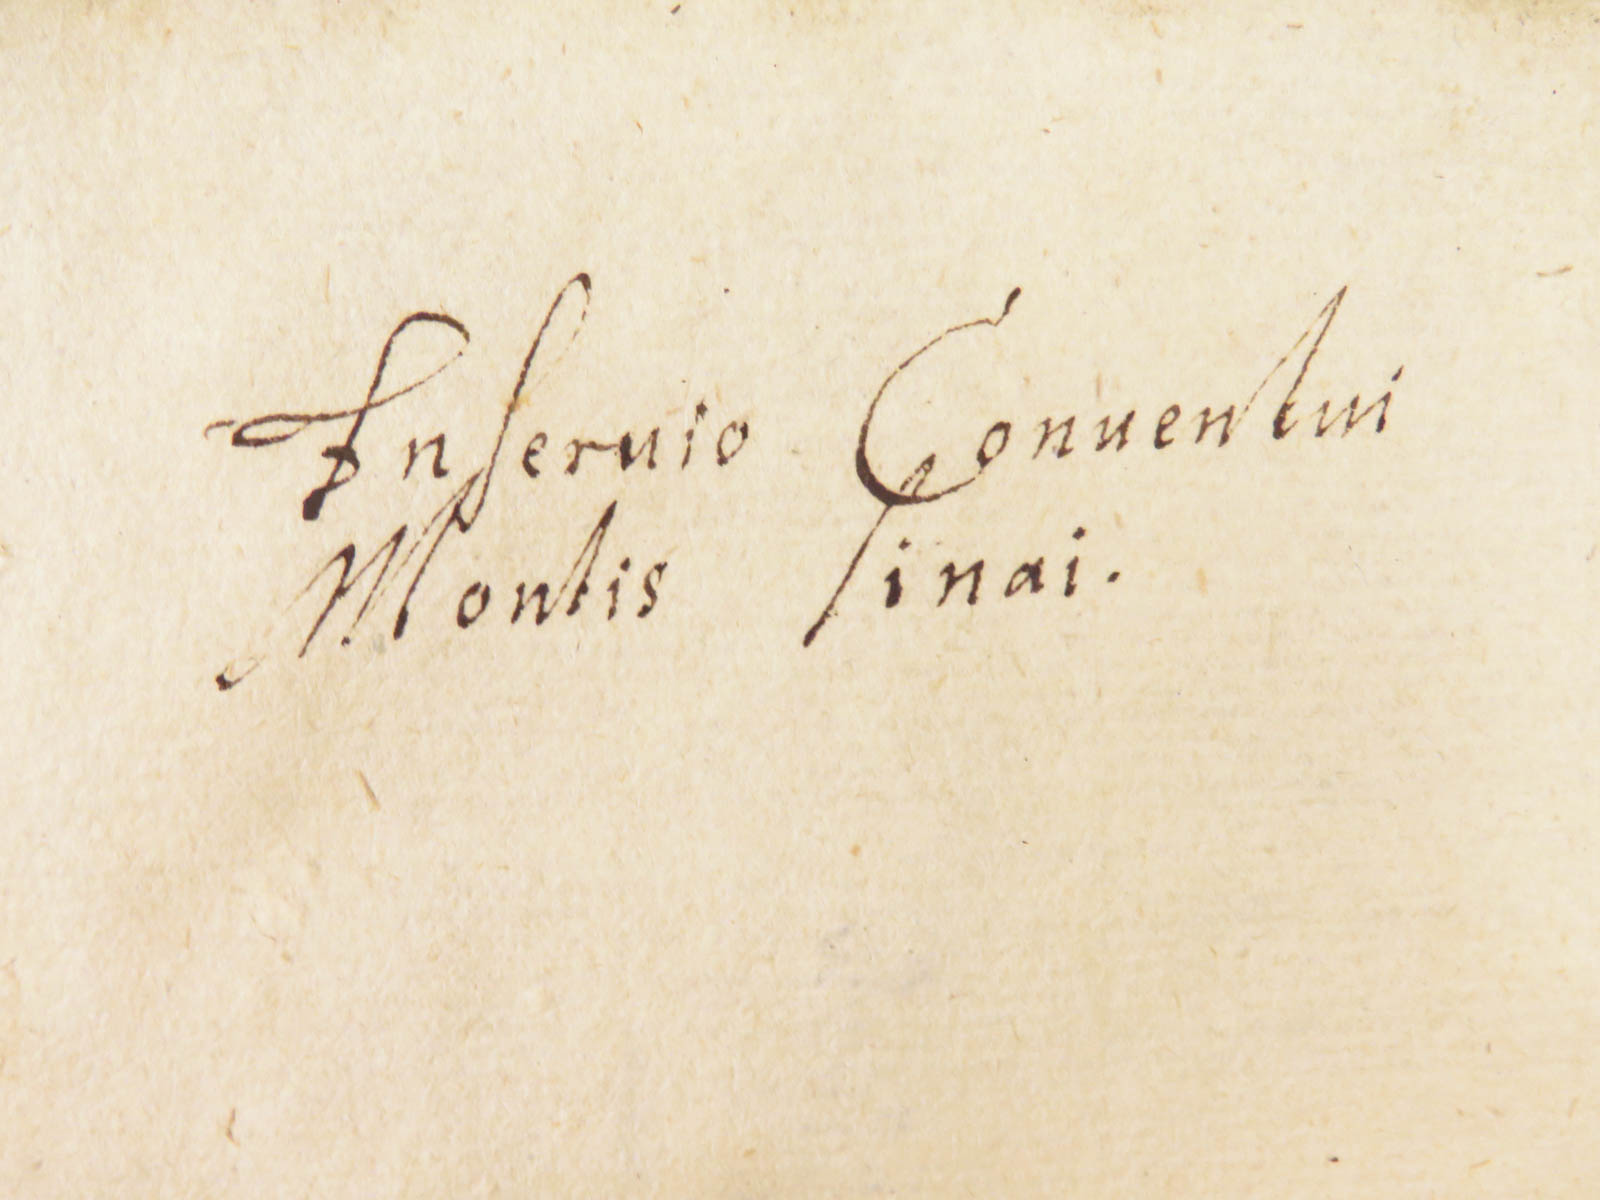 Inseruio Conuentui
Montis sinai.